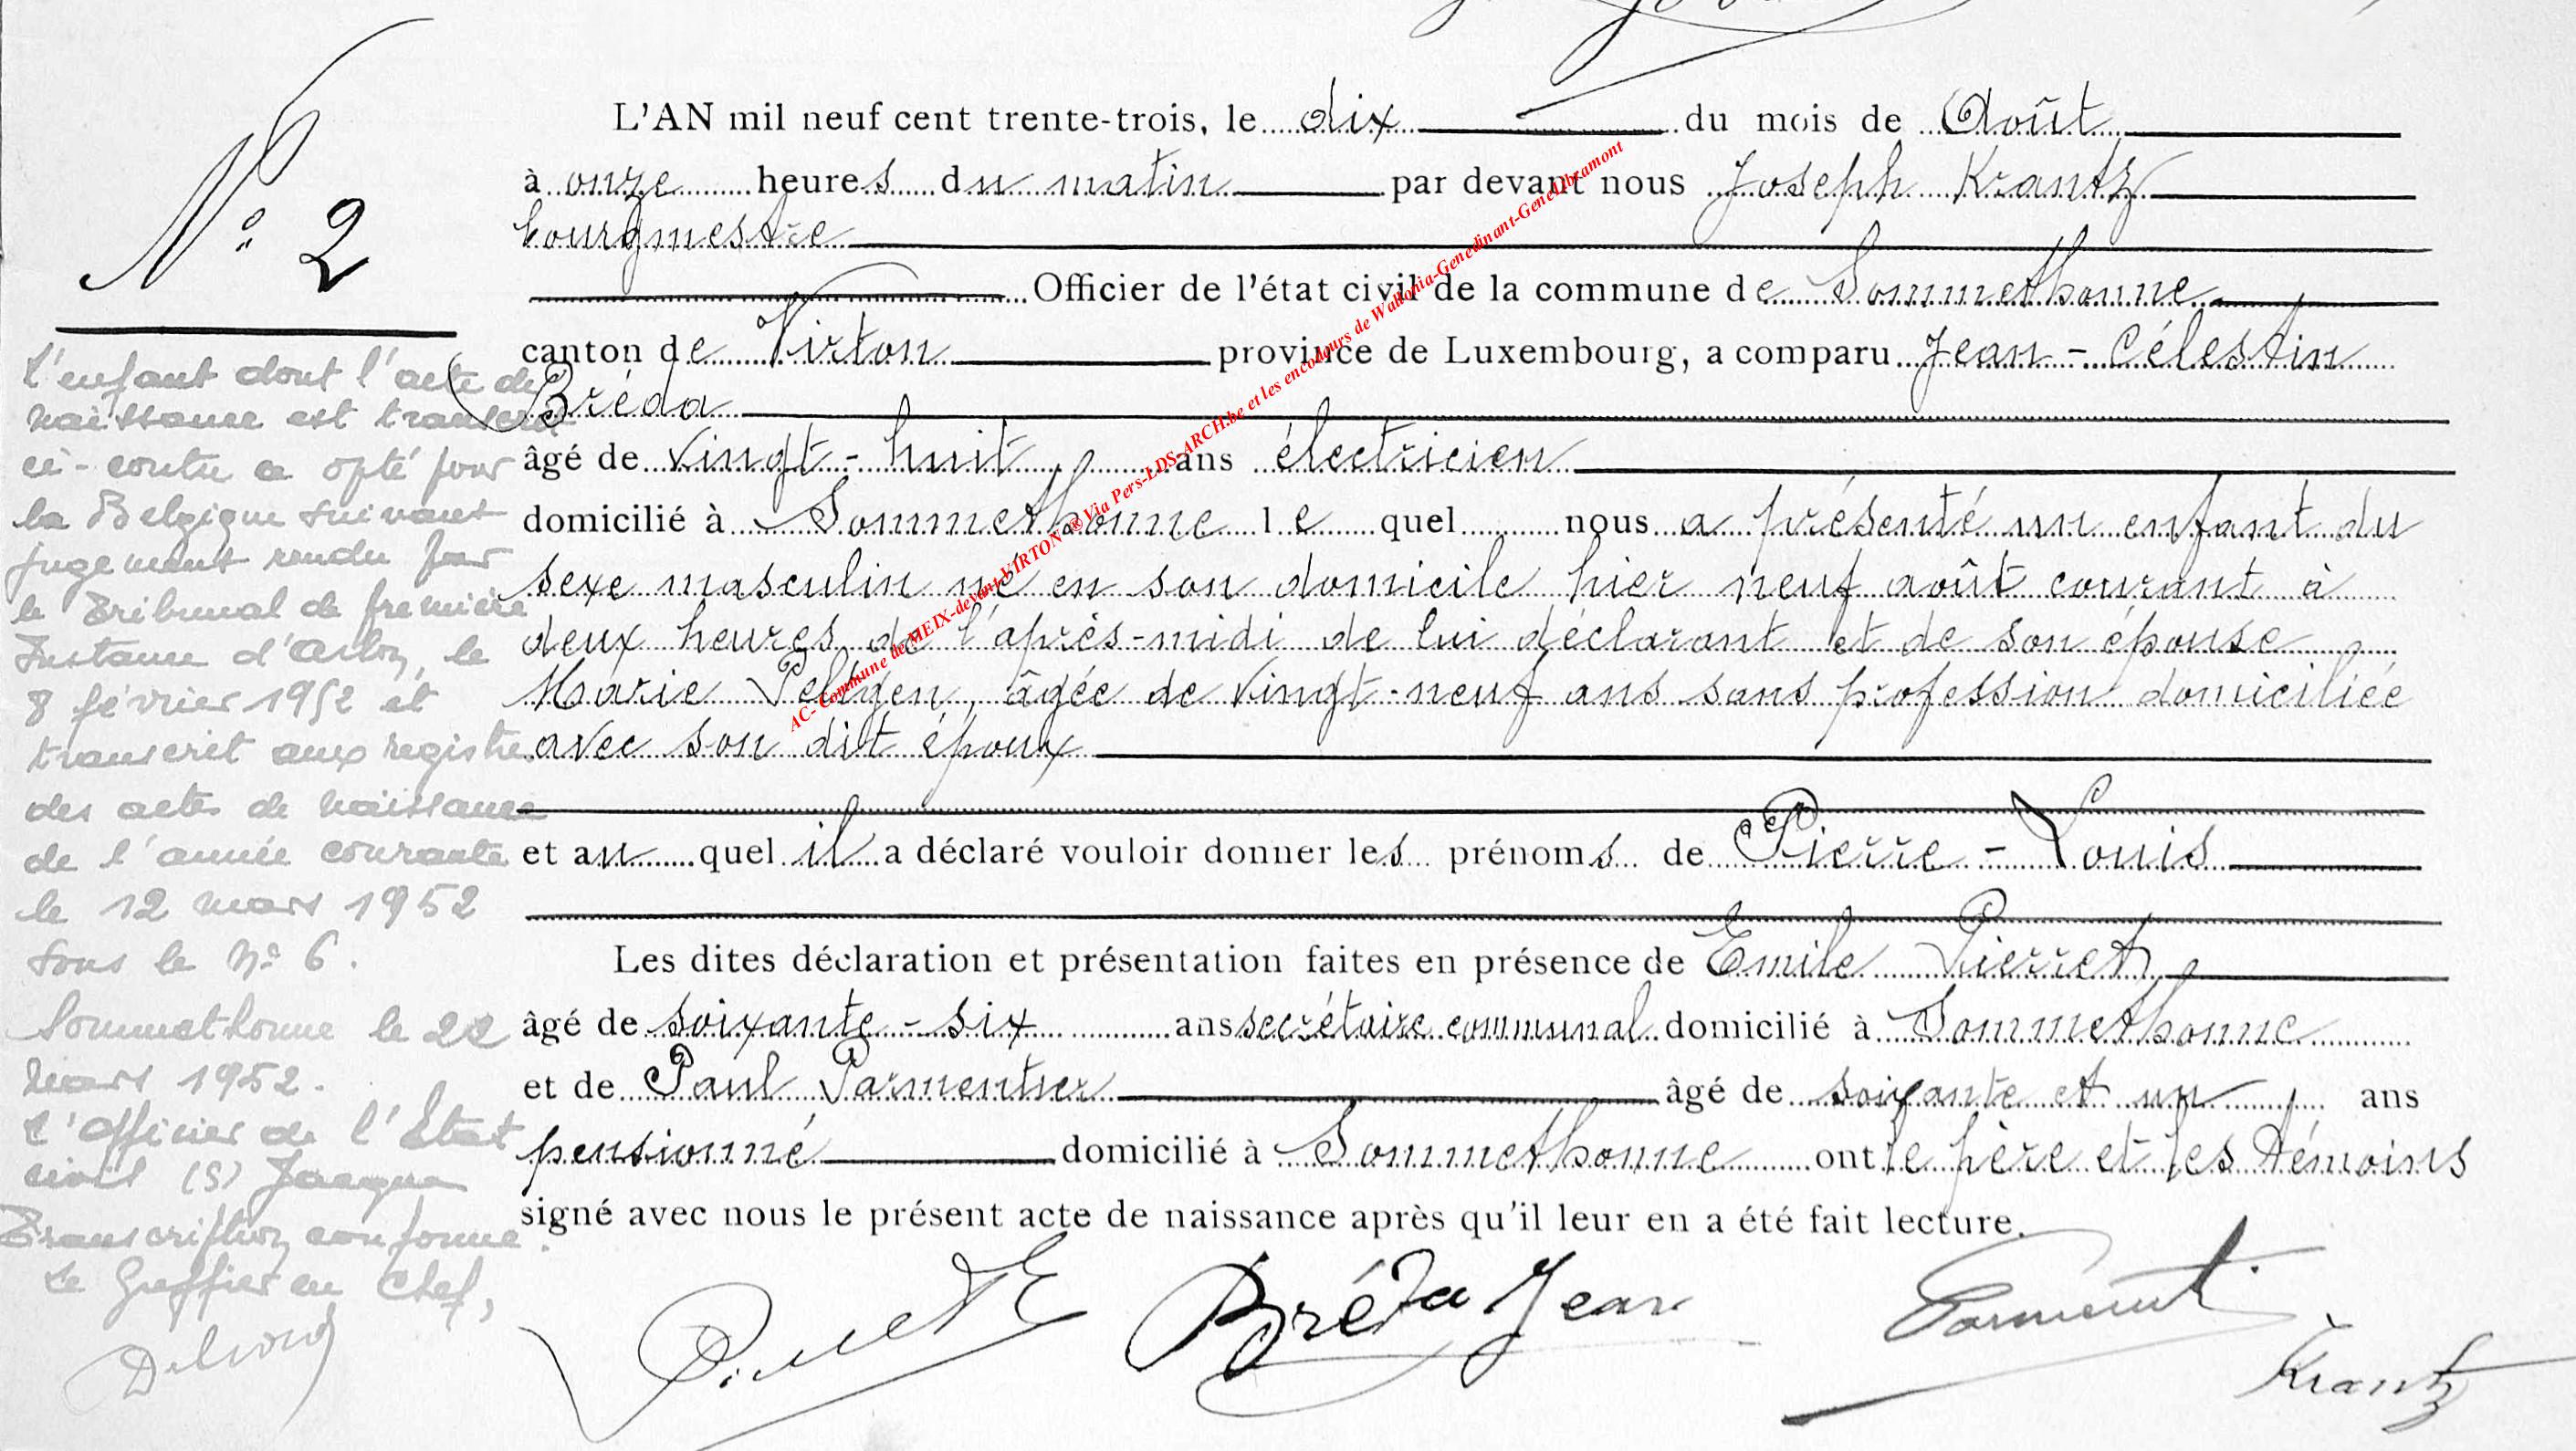 N° 2
L'AN mil neuf cent trente-trois, le dix du mois de Août
à onze heures du matin par devant nous Joseph Krantz
bourgmestre
Officier de l'état civil de la commune de Sommethonne
canton de Virton province de Luxembourg, a comparu Jean-Célestin
Bréda
âgé de vingt-huit ans électricien
domicilié à Sommethonne lequel nous a présenté un enfant du
sexe masculin né en son domicile hier neuf août courant à
deux heures de l'après-midi de lui déclarant et de son épouse
Marie Peltgen, âgée de vingt-neuf ans sans profession domiciliée
avec son dit époux
et auquel il a déclaré vouloir donner les prénoms de Pierre-Louis
Les dites déclaration et présentation faites en présence de Emile Pierret
âgé de soixante-six ans secrétaire communal domicilié à Sommethonne
et de Paul Parmentier âgé de soixante et un ans
pensionné domicilié à Sommethonne ont le père et les témoins
signé avec nous le présent acte de naissance après qu'il leur en a été fait lecture.
Bréda Jean
Krantz
L'enfant dont l'acte de
naissance est transcrit
ci-contre a opté pour
la Belgique suivant
jugement rendu par
le Tribunal de première
Instance d'Arlon, le
8 février 1952 et
transcrit aux registres
des actes de naissance
de l'année courante
le 12 mars 1952
sous le N° 6.
Sommethonne le 22
mars 1952.
L'Officier de l'Etat
civil (S) Jacques
Transcription conforme.
Le Greffier en Chef,
AC- Commune de MEIX-devant-VIRTON ® Via Pers-LDS-ARCH.be et les encodeurs de Wallonia-Genedinant-GeneLibramont